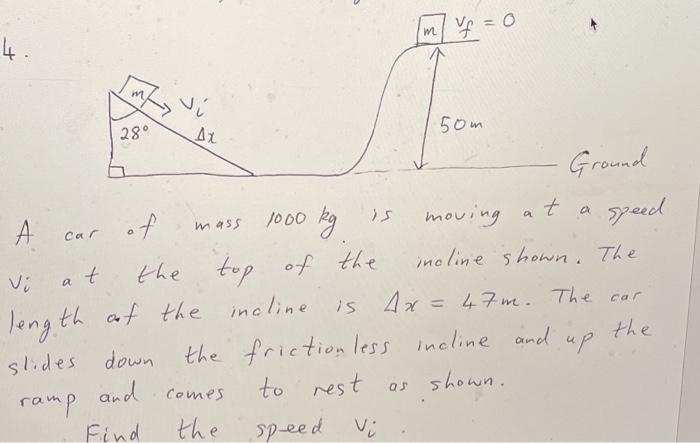 4.
m vf = 0
m vi
28° Δx
50m
Ground
A car of mass 1000 kg is moving at a speed
vi at the top of the incline shown. The
length of the incline is Δx = 47m. The car
slides down the frictionless incline and up the
ramp and comes to rest as shown.
Find the speed vi.